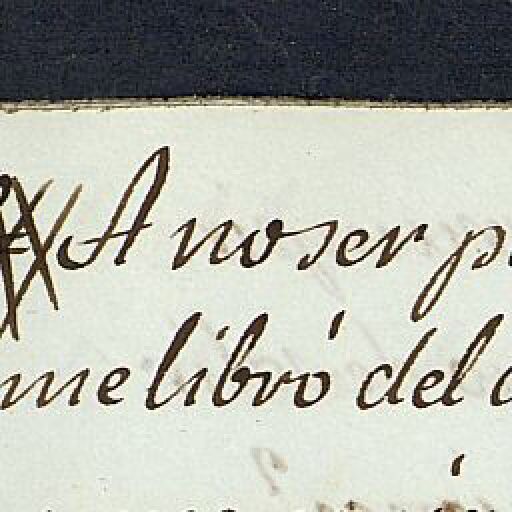 A no ser p
me libró del